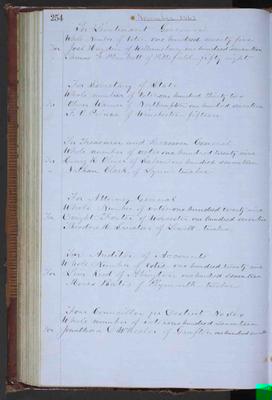 254
November 1863
For Lieutenant Governor
Whole Number of Votes, one hundred seventy five
For Joel Hayden of Williamsburg one hundred seventeen
Thomas F. Plunkett of Pittsfield fifty eight
For Secretary of State
Whole number of votes one hundred thirty two
For Oliver Warner of Northampton one hundred seventeen
of Winchester fifteen
For Treasurer and Receiver General
Whole number of votes one hundred twenty nine
For Henry K. Oliver of Salem one hundred seventeen
Nathan Clark of Lynn twelve
For Attorney General
Whole Number of votes one hundred twenty nine
For Dwight Foster of Worcester one hundred seventeen
Theodore H. Sweetser of Lowell twelve
For Auditor of Accounts
Whole Number of Votes one hundred twenty nine
For Levi Reed of Abington one hundred seventeen
Moses Bates of Plymouth twelve
For Councillor for District No.
Whole number of votes one hundred seventeen
For Jonathan D. Wheeler of Grafton one hundred